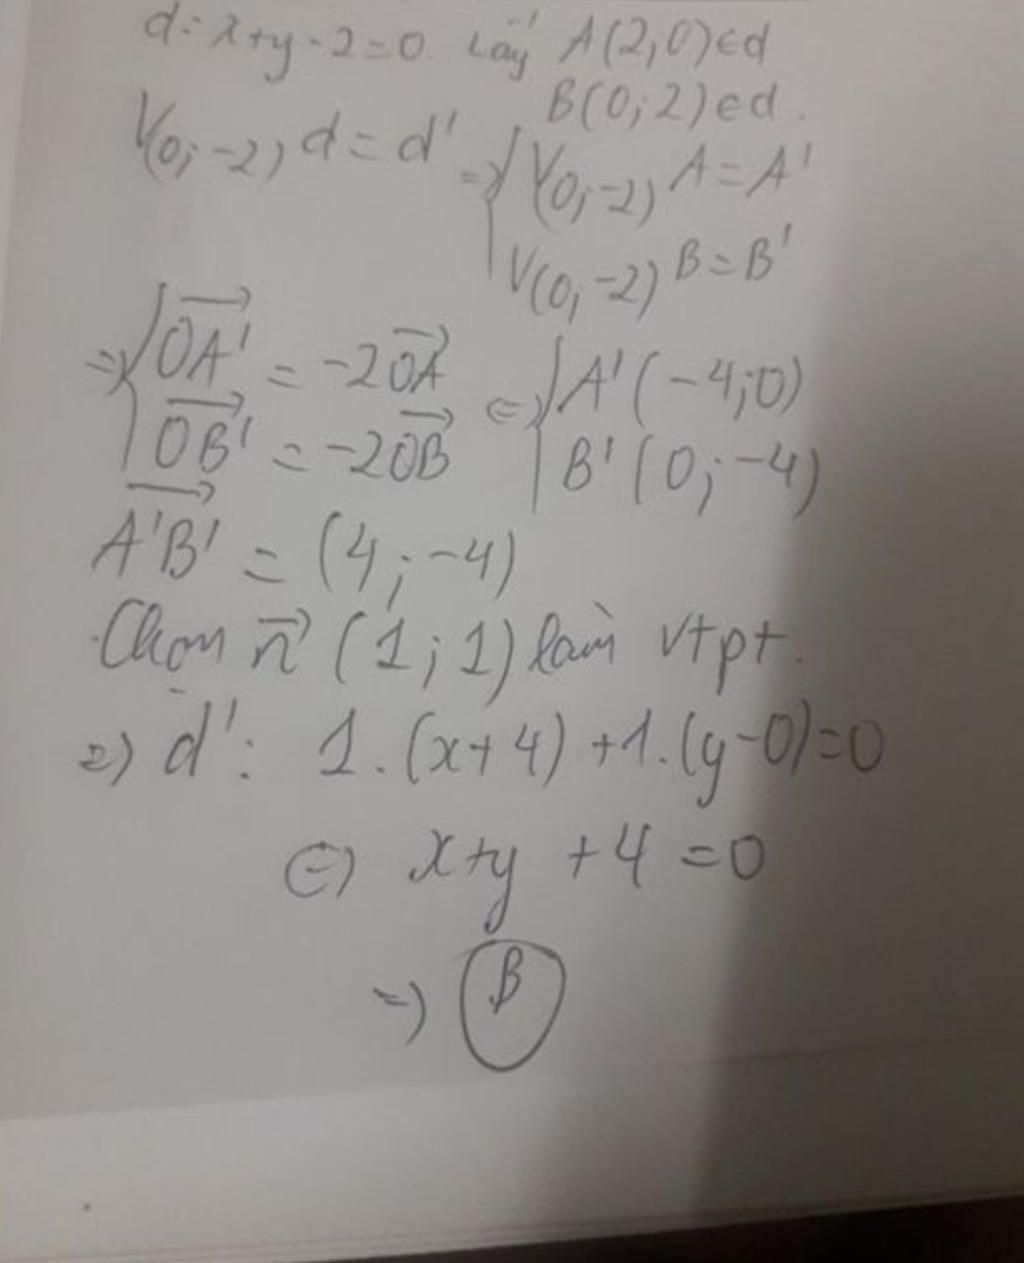 d: x+y-2=0. Lấy A(2;0)∈d
B(0;2)∈d.
V(0;-2) d=d' => { V(0;-2) A=A'
V(0;-2) B=B'
=> { OA' = -2OA <=> { A'(-4;0)
OB' = -2OB B'(0;-4)
A'B' = (4;-4)
Chọn n (1;1) làm vtpt.
=> d': 1.(x+4)+1.(y-0)=0
<=> x+y+4=0
=> B